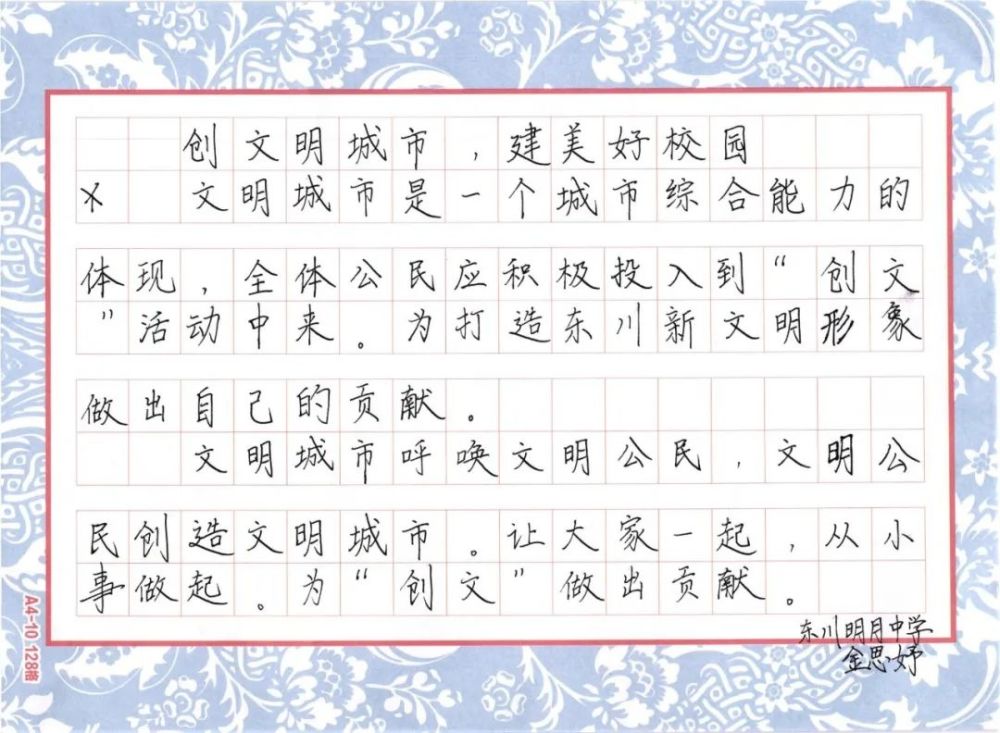 创文明城市，建美好校园
× 文明城市是一个城市综合能力的
体现，全体公民应积极投入到“创文
”活动中来。为打造东川新文明形象
做出自己的贡献。
文明城市呼唤文明公民，文明公
民创造文明城市。让大家一起，从小
事做起。为“创文”做出贡献。
东川明月中学
金思妤
A4-10 128格